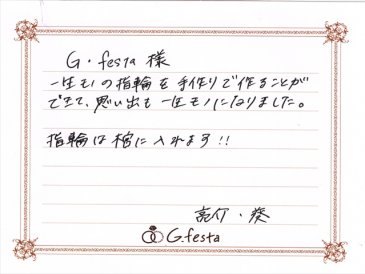 G・festa 様
一生モノの指輪を手作りで作ることが
できて、思い出も一生モノになりました。
指輪は棺に入れます!!
亮介・葵
G.festa